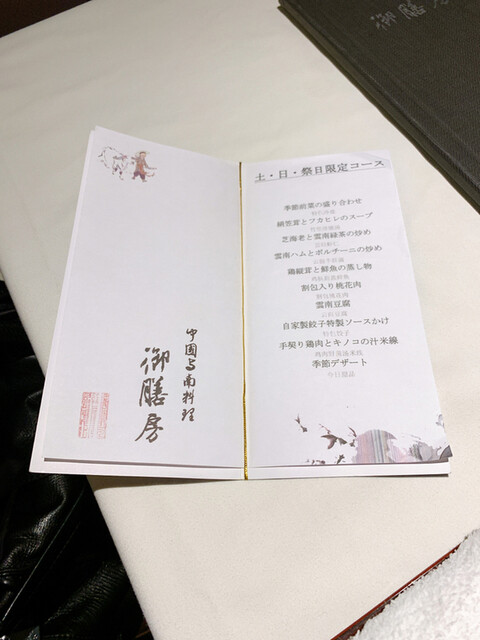 御膳房
中國雲南料理
御膳房
土・日・祭日限定コース
季節前菜の盛り合わせ
絹笠茸とフカヒレのスープ
芝海老と雲南緑茶の炒め
雲南ハムとポルチーニの炒め
鶏縦茸と鮮魚の蒸し物
割包入り桃花肉
雲南豆腐
自家製餃子特製ソースかけ
手契り鶏肉とキノコの汁米線
季節デザート